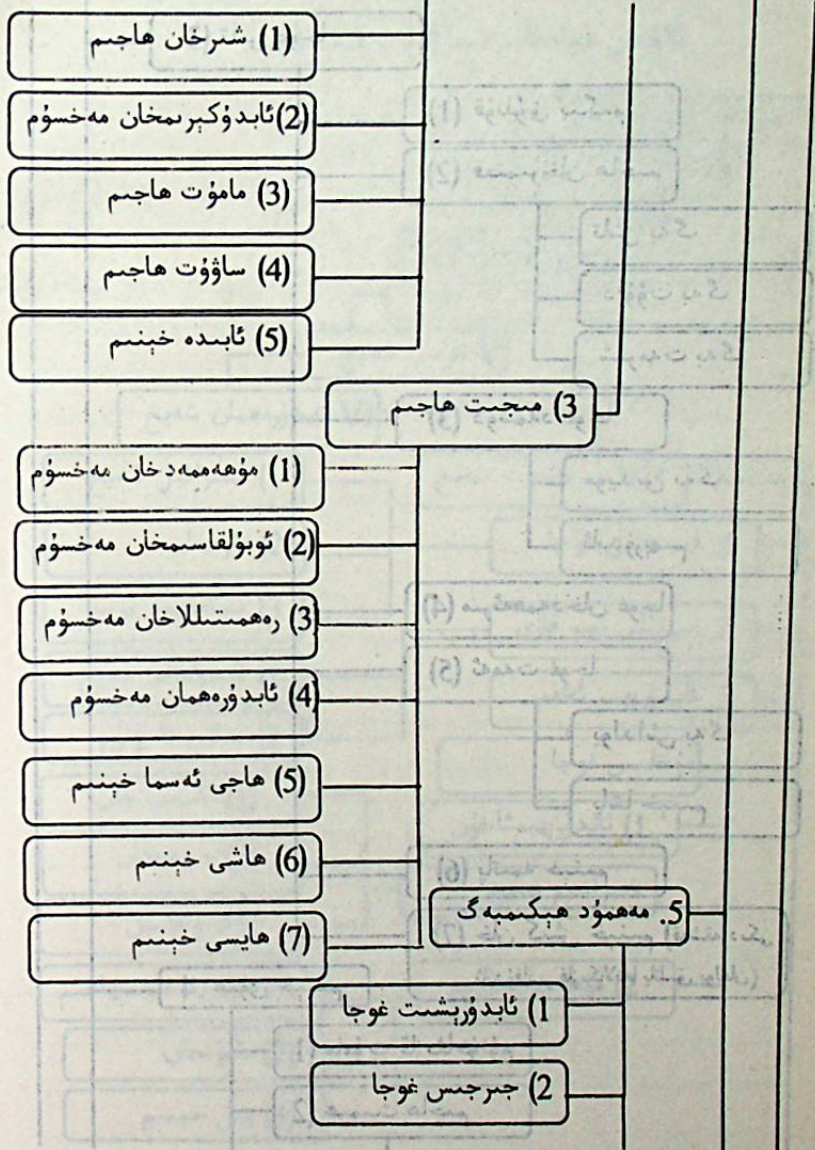 (1) شىرخان ھاجىم
(2) ئابدۇكېرىمخان مەخسۇم
(3) مامۇت ھاجىم
(4) ساۋۇت ھاجىم
(5) ئابىدە خېنىم
3) مىجىت ھاجىم
(1) مۇھەممەدخان مەخسۇم
(2) ئوبۇلقاسىمخان مەخسۇم
(3) رەھمىتىللاخان مەخسۇم
(4) ئابدۇرەھمان مەخسۇم
(5) ھاجى ئەسما خېنىم
(6) ھاشى خېنىم
(7) ھايىسى خېنىم
5. مەھمۇد ھېكىمبەگ
1) ئابدۇرېشىت غوجا
2) جىرجىس غوجا